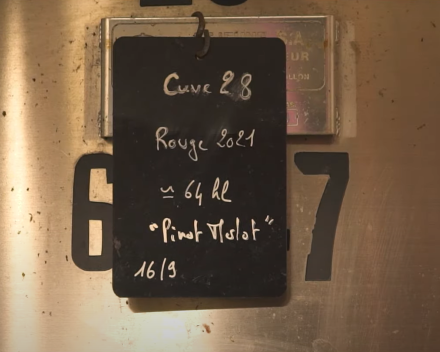 Cuve 28
Rouge 2021
≃ 64 hl
"Pinot Merlot"
16/9
6 7